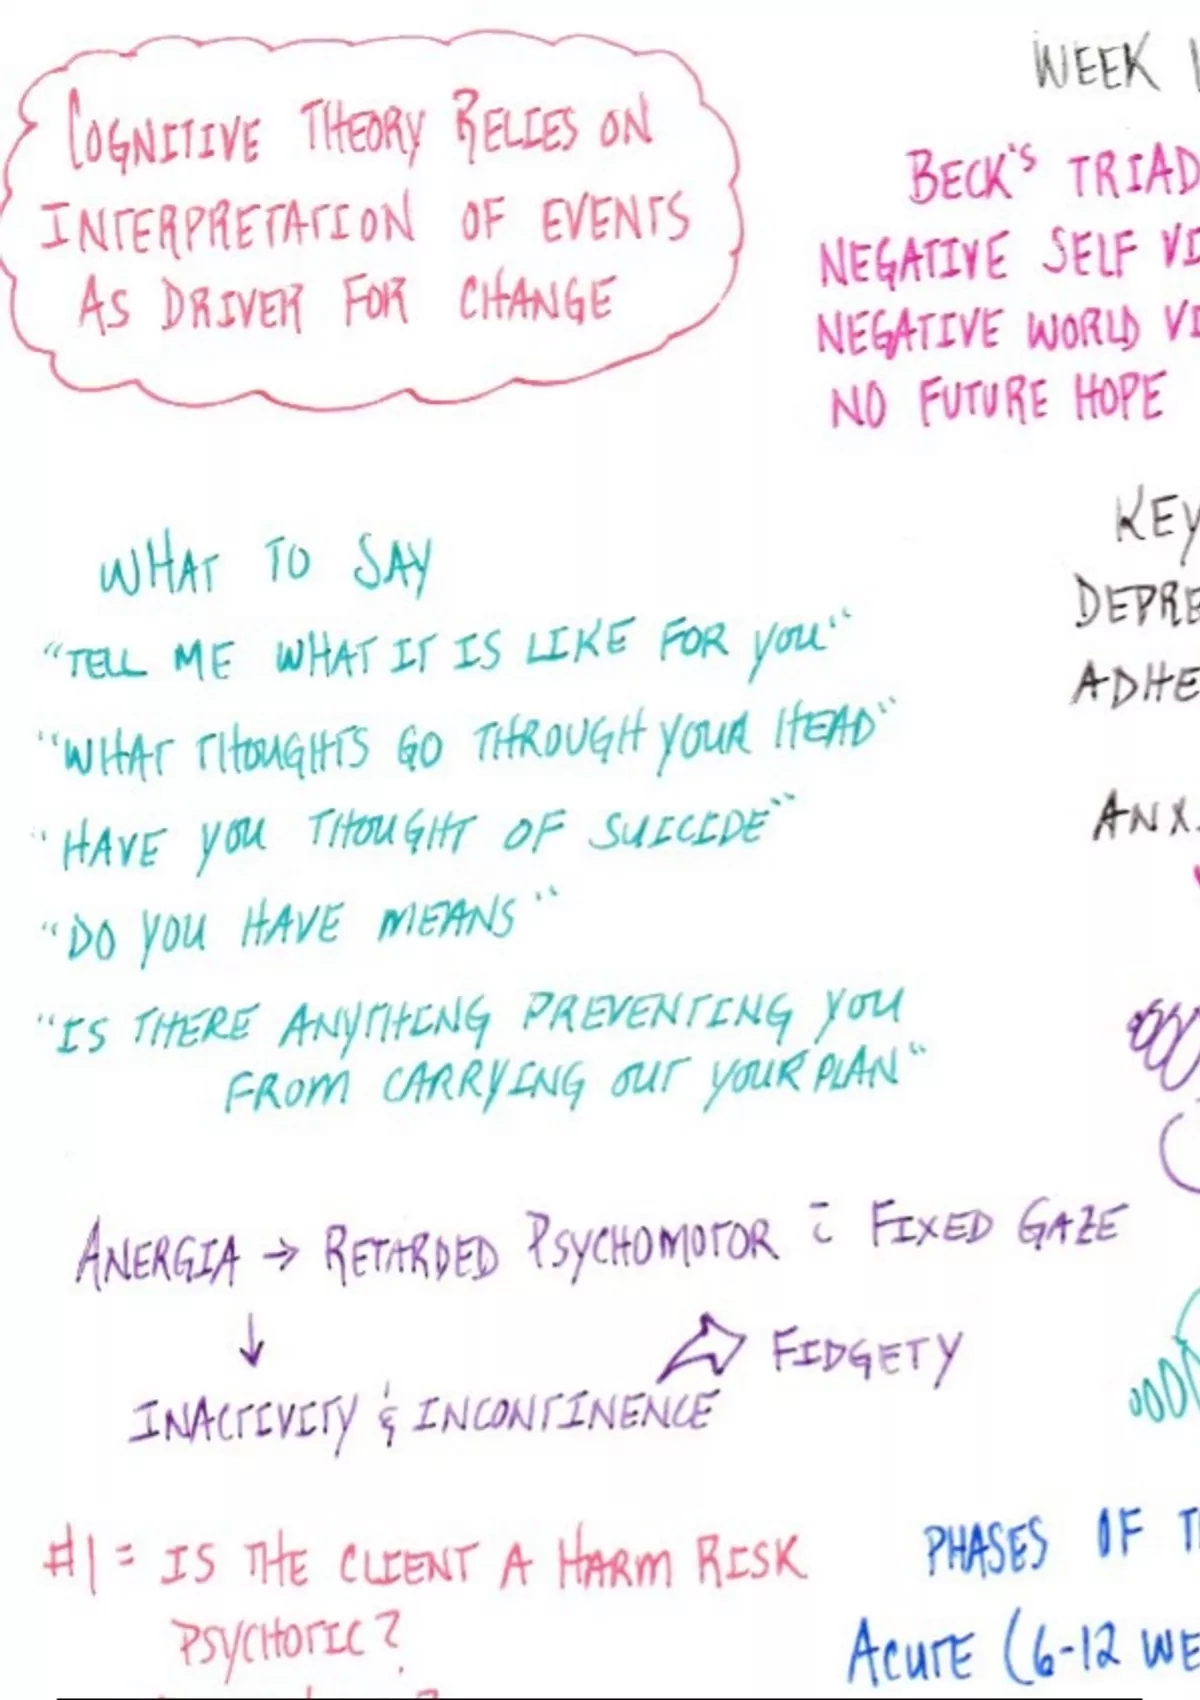 COGNITIVE THEORY RELIES ON
INTERPRETATION OF EVENTS
AS DRIVER FOR CHANGE
WEEK
BECK'S TRIAD
NEGATIVE SELF VI
NEGATIVE WORLD VI
NO FUTURE HOPE
WHAT TO SAY
"TELL ME WHAT IT IS LIKE FOR YOU"
"WHAT THOUGHTS GO THROUGH YOUR HEAD"
"HAVE YOU THOUGHT OF SUICIDE"
"DO YOU HAVE MEANS"
"IS THERE ANYTHING PREVENTING YOU
FROM CARRYING OUT YOUR PLAN"
KEY
DEPRE
ADHE
ANX.
ANERGIA → RETARDED PSYCHOMOTOR c̄ FIXED GAZE
↓
INACTIVITY & INCONTINENCE
FIDGETY
#1 = IS THE CLIENT A HARM RISK
PSYCHOTIC?
PHASES OF T
ACUTE (6-12 WE